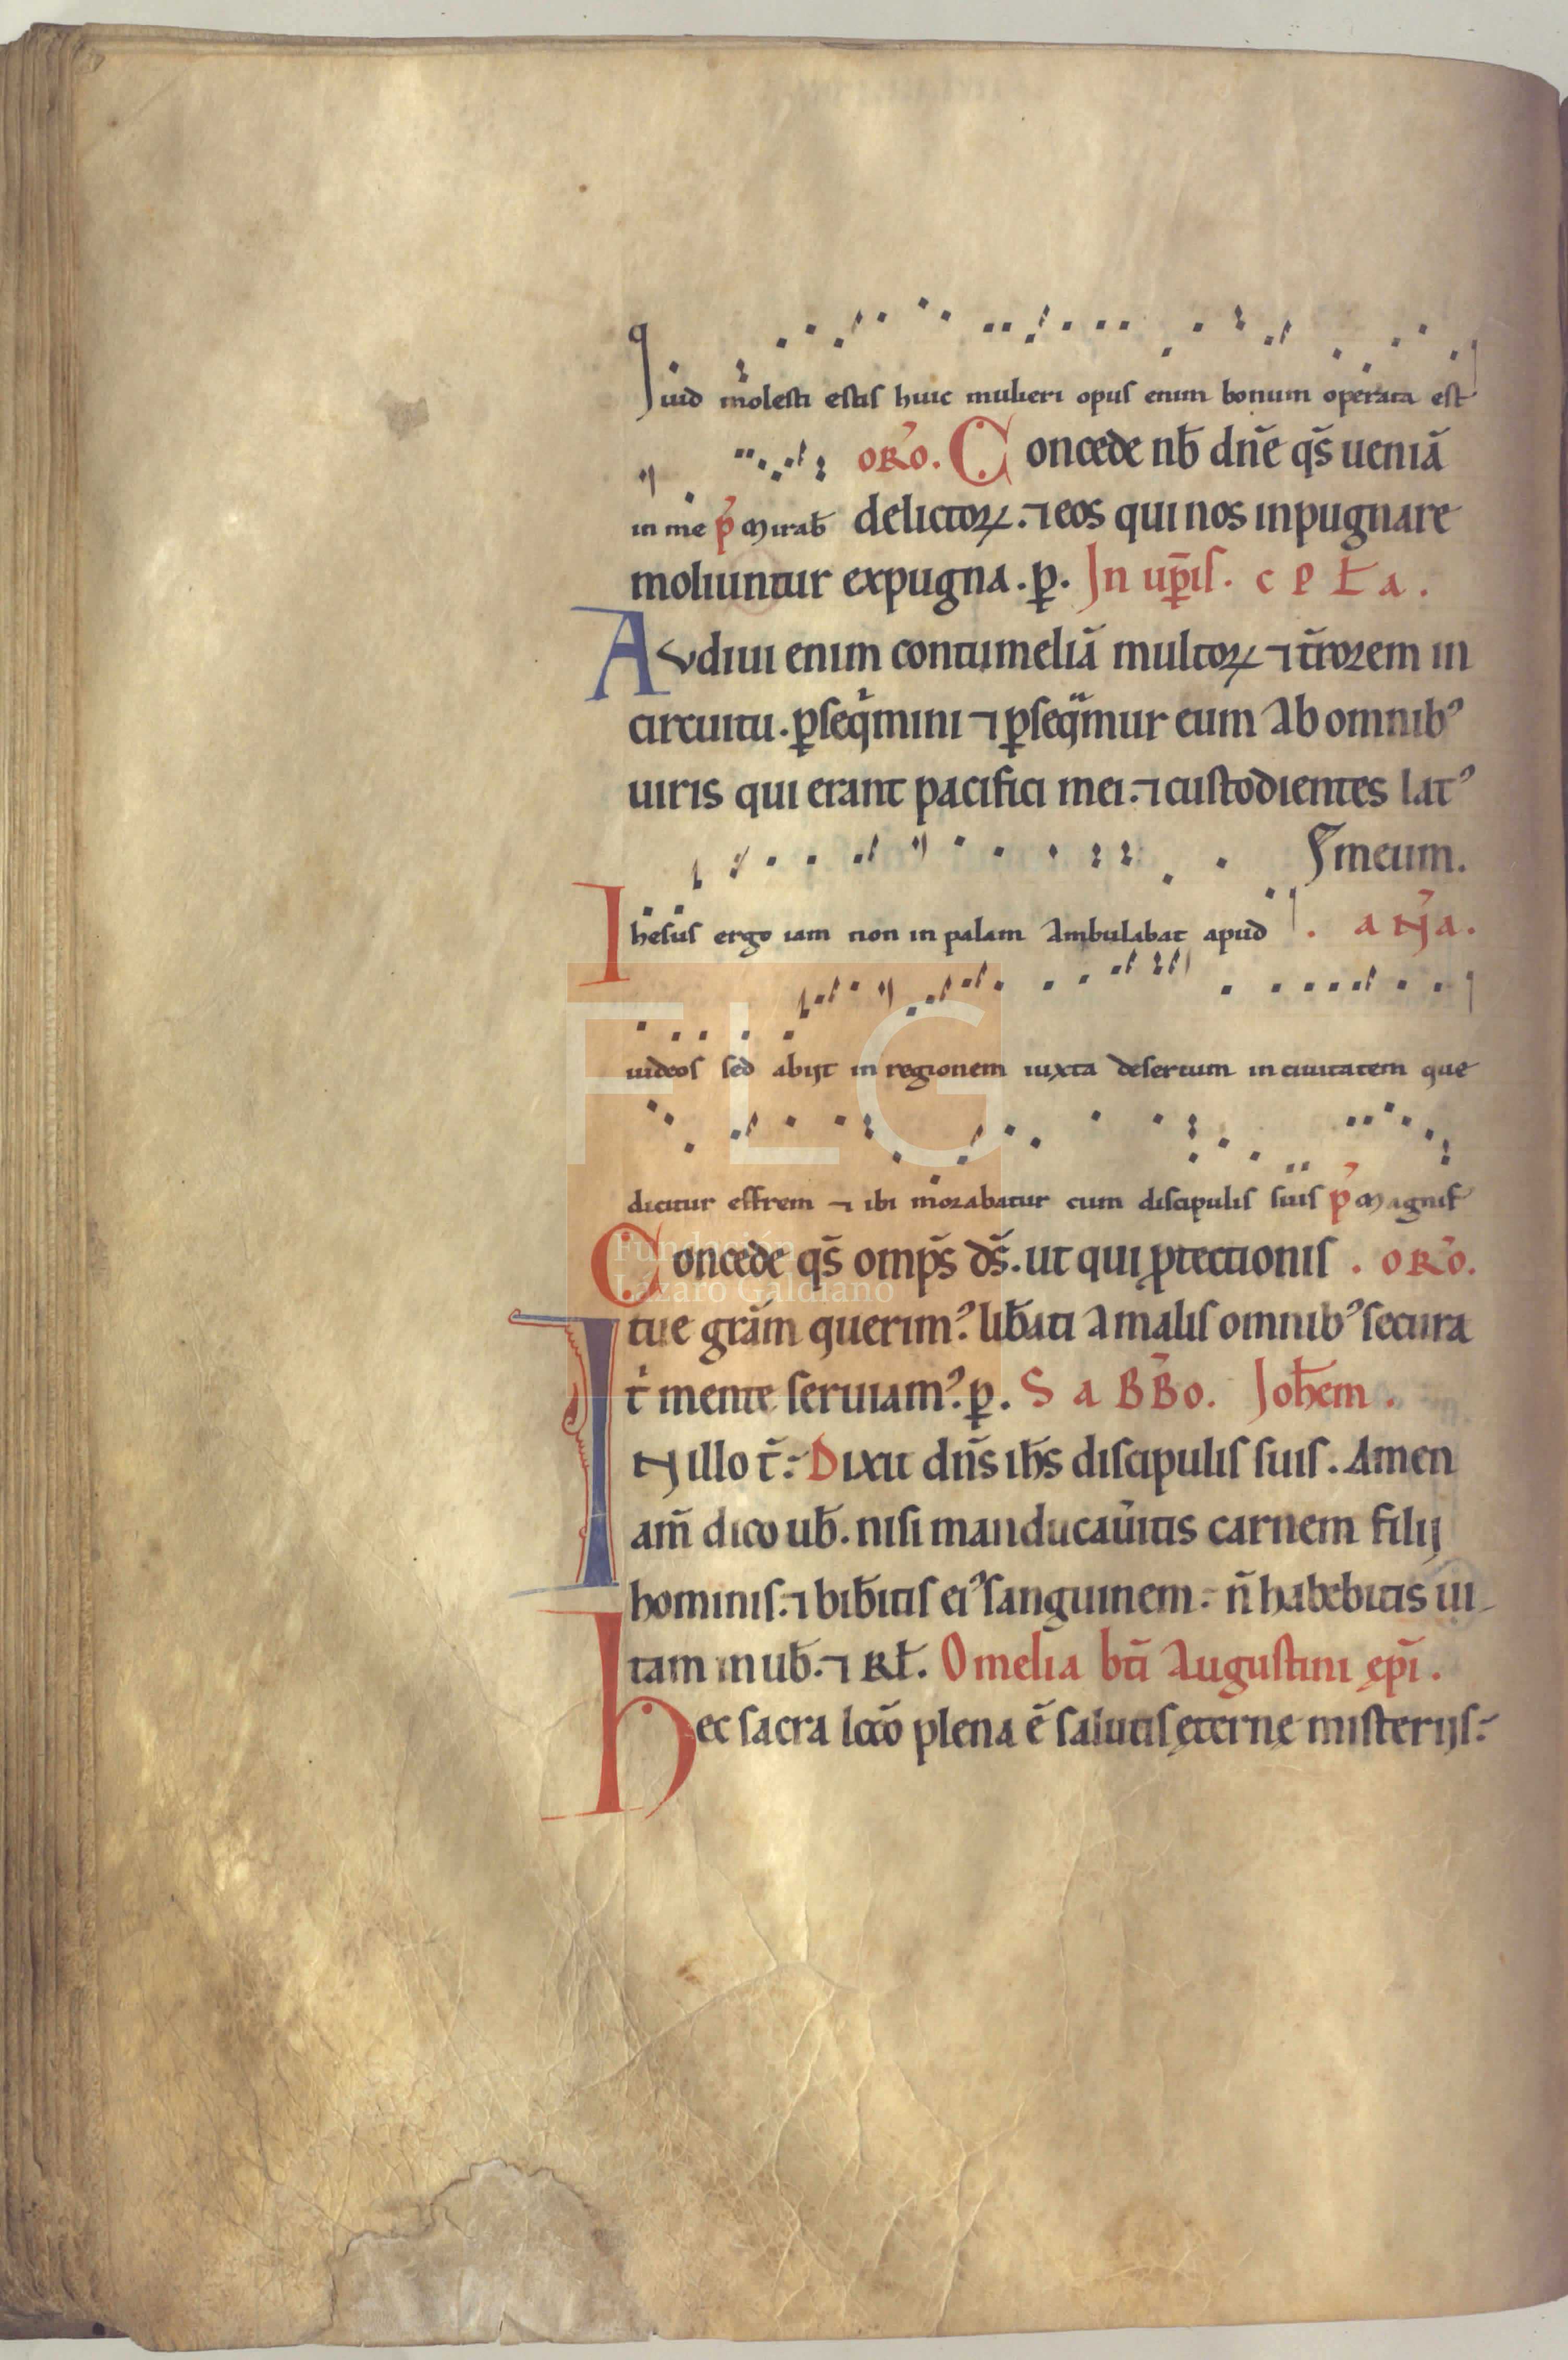 Quid molesti estis huic mulieri opus enim bonum operata est
in me p̄ Mirab̄ oRō. Concede nb̄ dn̄e qs̄ ueniā
delictoꝝ. ⁊ eos qui nos inpugnare
moliuntur expugna. ꝑ. In up̄is. c P Ł a.
Audiui enim contumeliā multoꝝ ⁊ t̄rorem in
circuitu. ꝑseqͥmini ⁊ ꝑseqͣmur eum Ab omnibꝰ
uiris qui erant pacifici mei. ⁊ custodientes latꝰ
meum.
Ihesus ergo iam non in palam Ambulabat apud . aÑa.
iudeos sed abijt in regionem iuxta desertum in ciuitatem que
dicitur effrem ⁊ ibi morabatur cum discipulis suis p̄ Magnif̄
Concede qs̄ omp̄s ds̄. ut qui ꝓtectionis . oRō.
tue grām querimꝰ. lib̄ati A malis omnibꝰ secura
tͥ mente seruiamꝰ. ꝑ. SaBB̄o. Joh̄em.
IN illo t̄. Dixit dn̄s ih̄s discipulis suis. Amen
am̄ dico ub̄. nisi manducau̾itis carnem filij
hominis. ⁊ bib̄itis eiꝰ sanguinem. n̄ habebitis ui
tam in ub̄. ⁊ Rł. Omelia bt̄i Augustini ep̄i.
Hec sacra lc̄cō plena ē salutis ęterne misterijs.
FLG
Fundación
Lázaro Galdiano